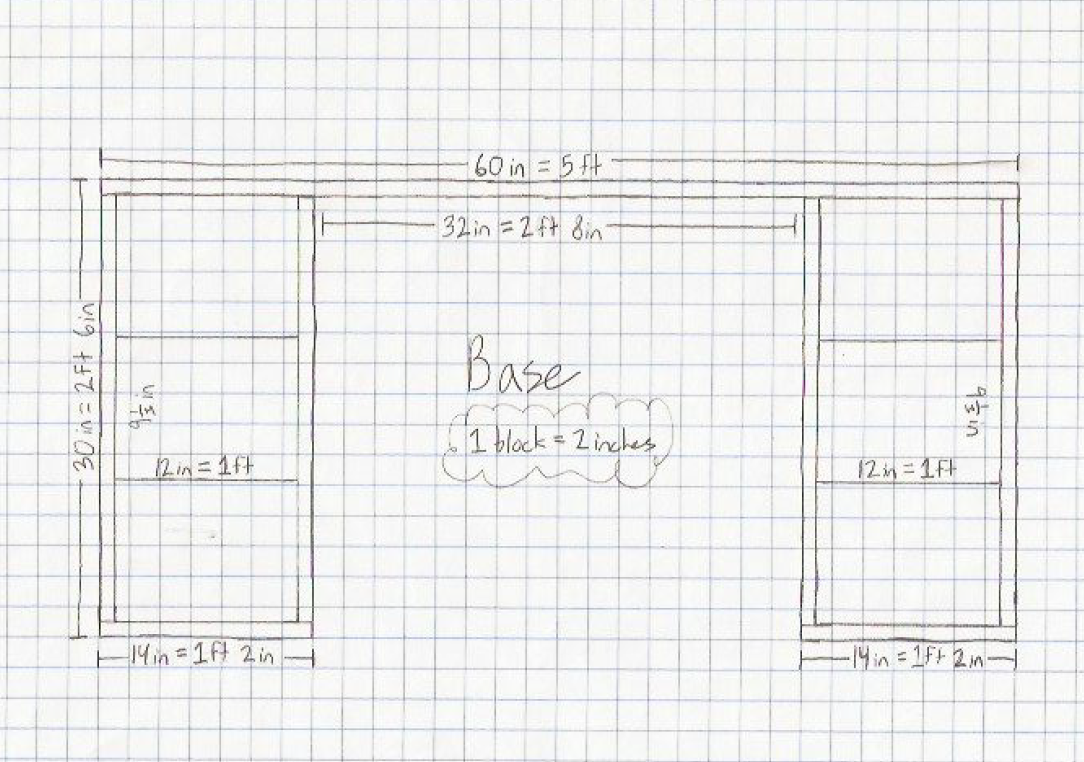 60 in = 5 ft
32 in = 2 ft 8 in
30 in = 2 ft 6 in
Base
1 block = 2 inches
9 1/3 in
9 1/3 in
12 in = 1 ft
12 in = 1 ft
14 in = 1 ft 2 in
14 in = 1 ft 2 in